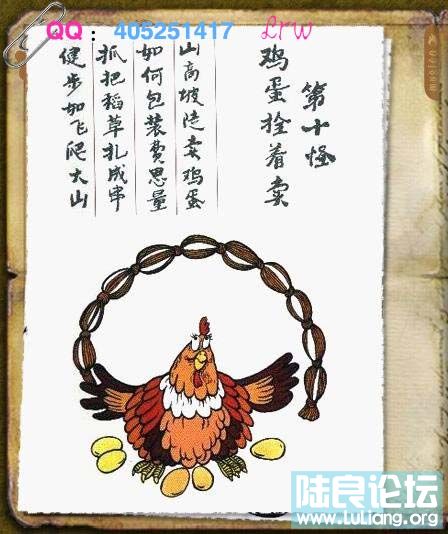 QQ：405251417 Lrw
第十怪
鸡蛋拴着卖
山高坡陡卖鸡蛋
如何包装费思量
抓把稻草扎成串
健步如飞爬大山
陆良论坛
www.luliang.org